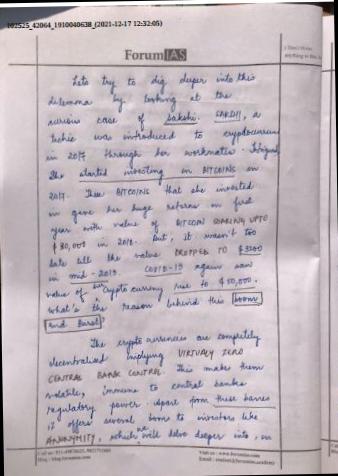 102525_42064_1910040638_(2021-12-17 12:32:05)
ForumIAS
Lets try to dig deeper into this
dilemma by looking at the
curious case of Sakshi. SAKSHI, a
techie was introduced to cryptocurrency
in 2017 through her workmates.
She started investing in BITCOINS in
2017. These BITCOINS that she invested
in gave her huge returns in first
year with value of BITCOIN SOARING UPTO
$ 30,000 in 2018. But, it wasn't too
late till the value DROPPED TO $3200
in mid-2019. COVID-19 again saw
value of crypto currency rise to $50,000.
what's the reason behind this boom
and Burst?
The crypto currencies are completely
decentralised implying VIRTUALY ZERO
CENTRAL BANK CONTROL. This makes them
volatile, immune to central banks
regulatory power. Apart from these barriers
it offers several boons to investors like
ANONYMITY, which we will delve deeper into, in